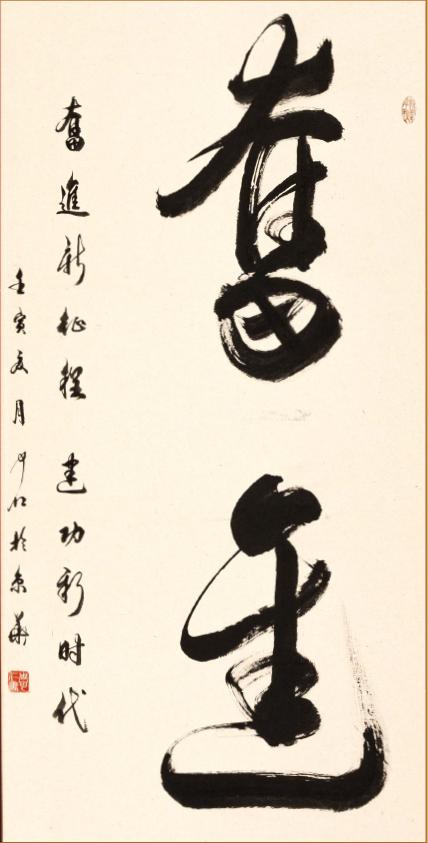 奮進
奮進新征程 建功新时代
壬寅夏月 於京華